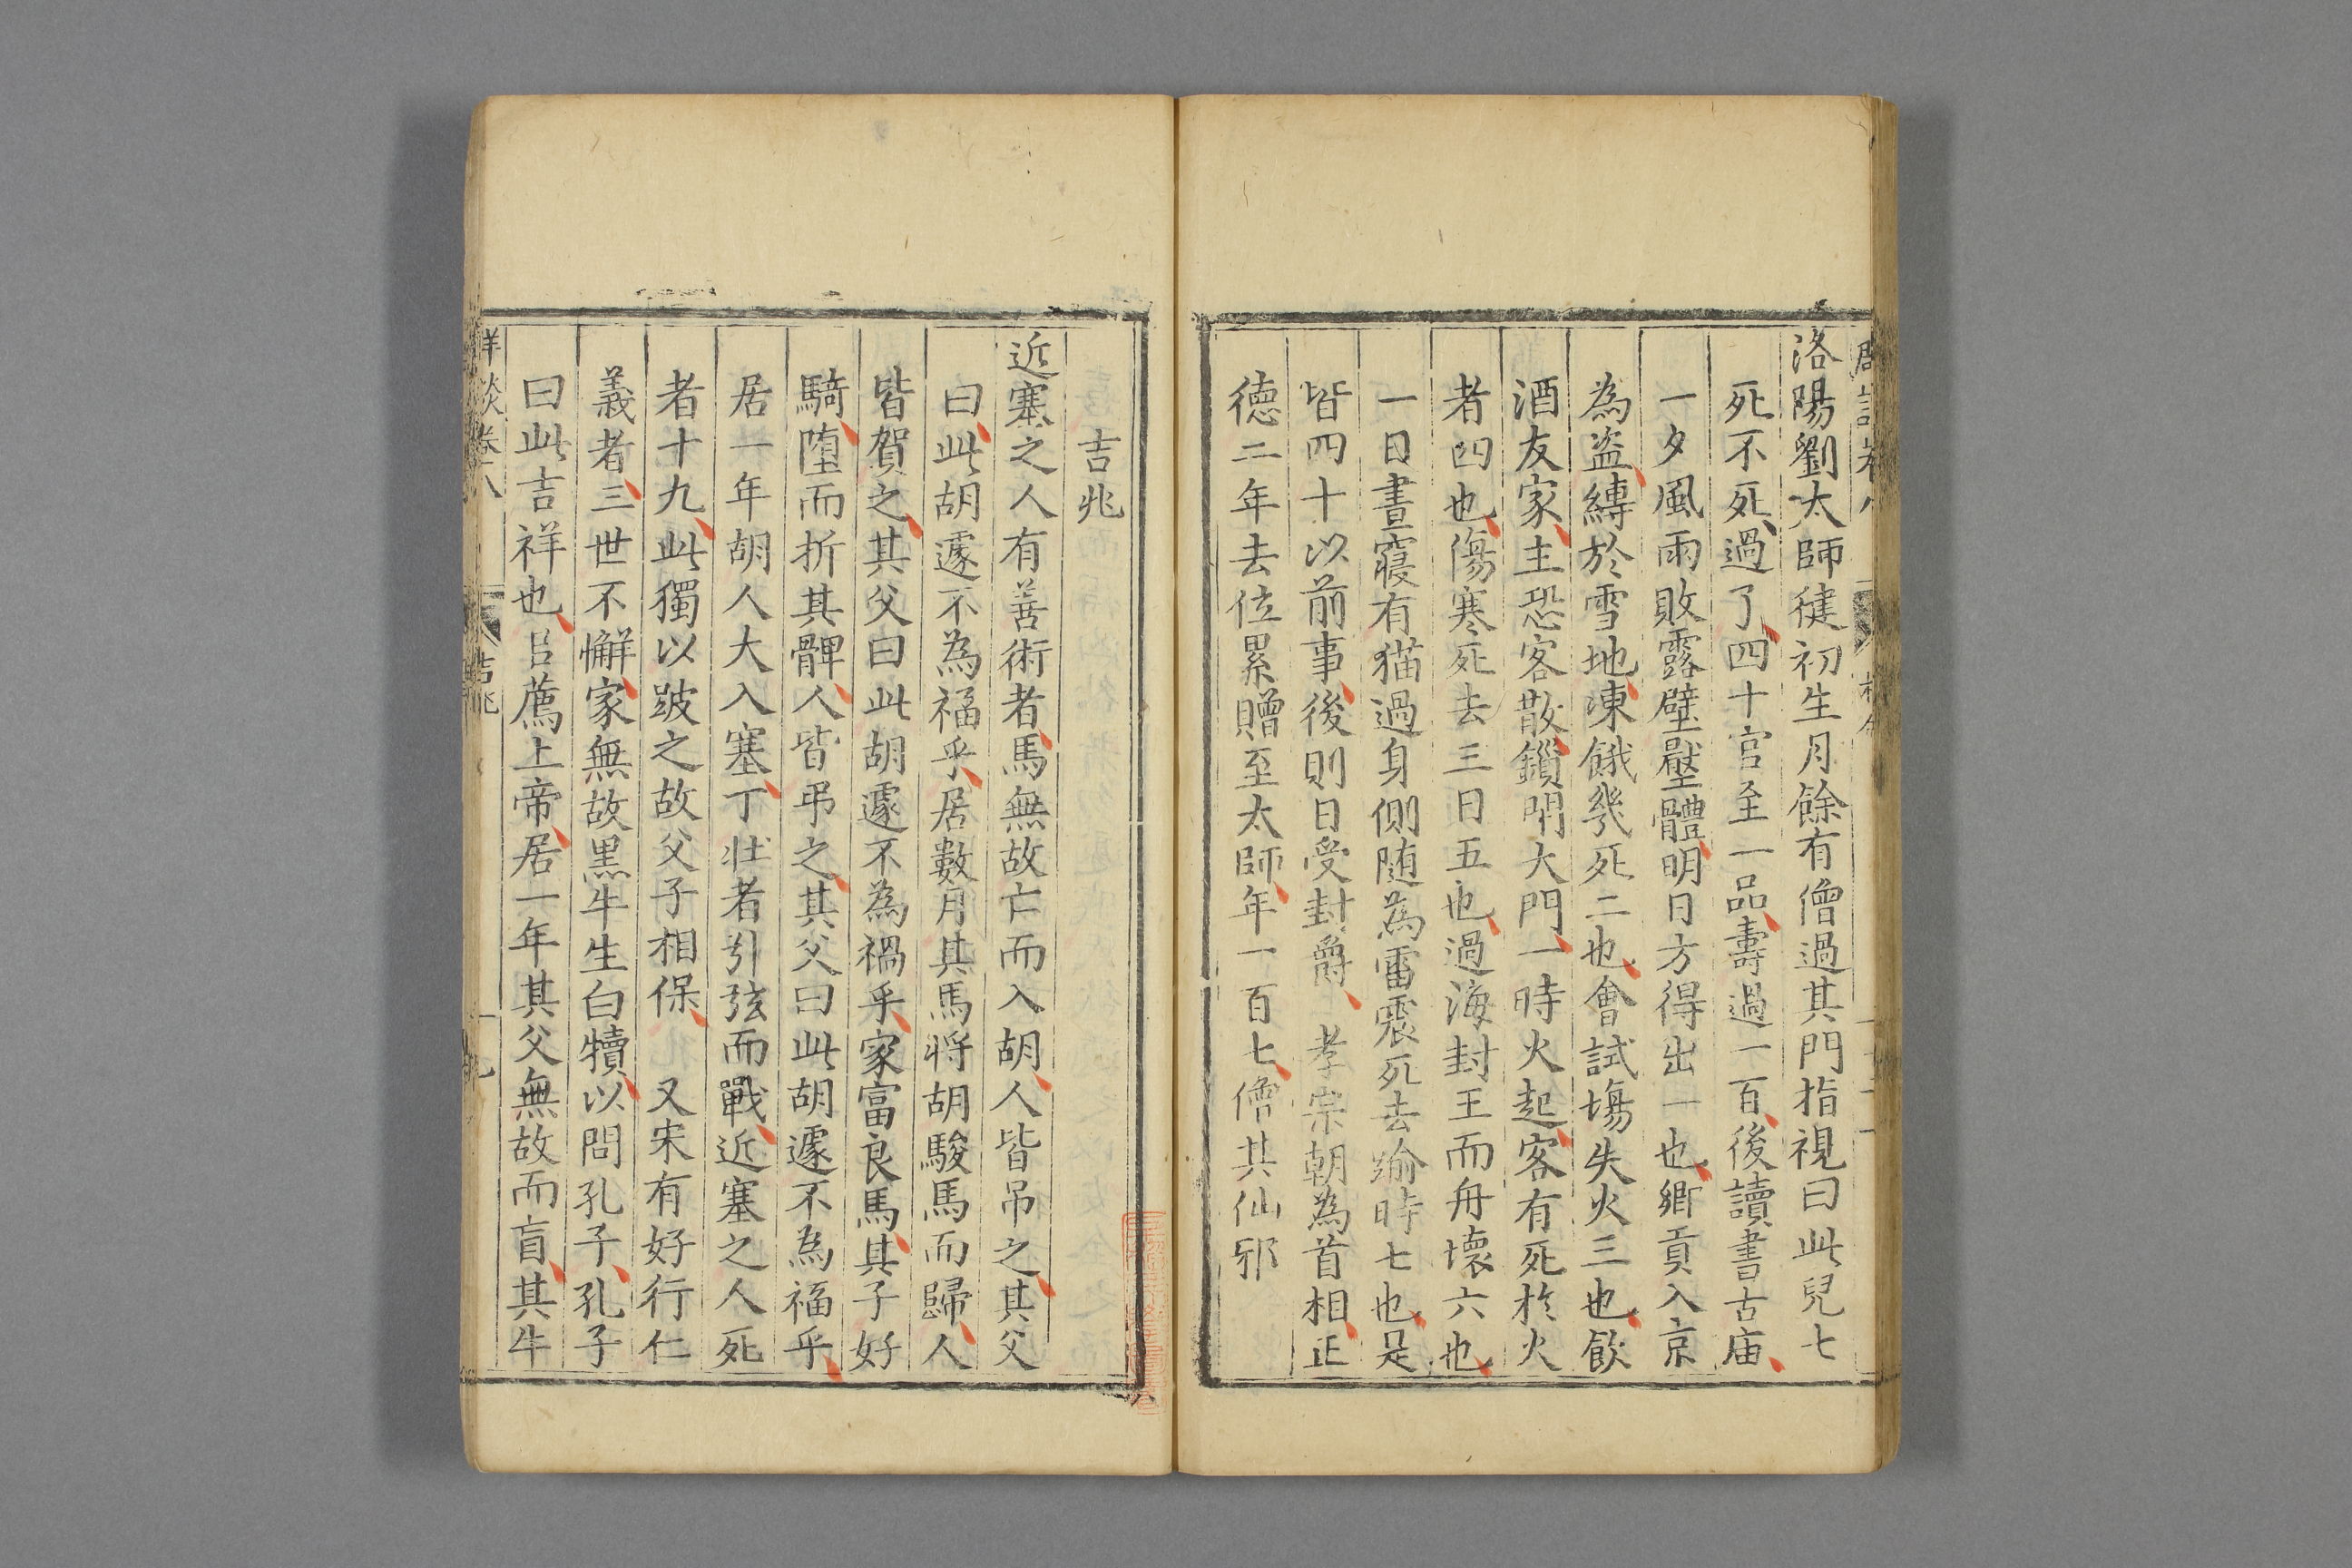 洛陽劉太師健初生月餘有僧過其門指視曰此兒七
死不死過了四十官至一品壽過一百後讀書古庙
一夕風雨敗露壁壓體明日方得出一也鄉貢入京
為盗縛於雪地凍餓幾死二也會試塲失火三也飲
酒友家主恐客散鎖閉大門一時火起客有死於火
者四也傷寒死去三日五也過海封王而舟壞六也
一日晝寢有猫過身側随為雷震死去踰時七也是
皆四十以前事後則日受封爵 孝宗朝為首相正
德二年去位累贈至太師年一百七僧其仙邪
吉兆
近塞之人有善術者馬無故亡而入胡人皆吊之其父
曰此胡遽不為福乎居數月其馬将胡駿馬而歸人
皆賀之其父曰此胡遽不為禍乎家富良馬其子好
騎墮而折其髀人皆弔之其父曰此胡遽不為福乎
居一年胡人大入塞丁壯者引弦而戰近塞之人死
者十九此獨以跛之故父子相保 又宋有好行仁
義者三世不懈家無故黒牛生白犢以問孔子孔子
曰此吉祥也㠯薦上帝居一年其父無故而盲其牛
卷八 吉兆